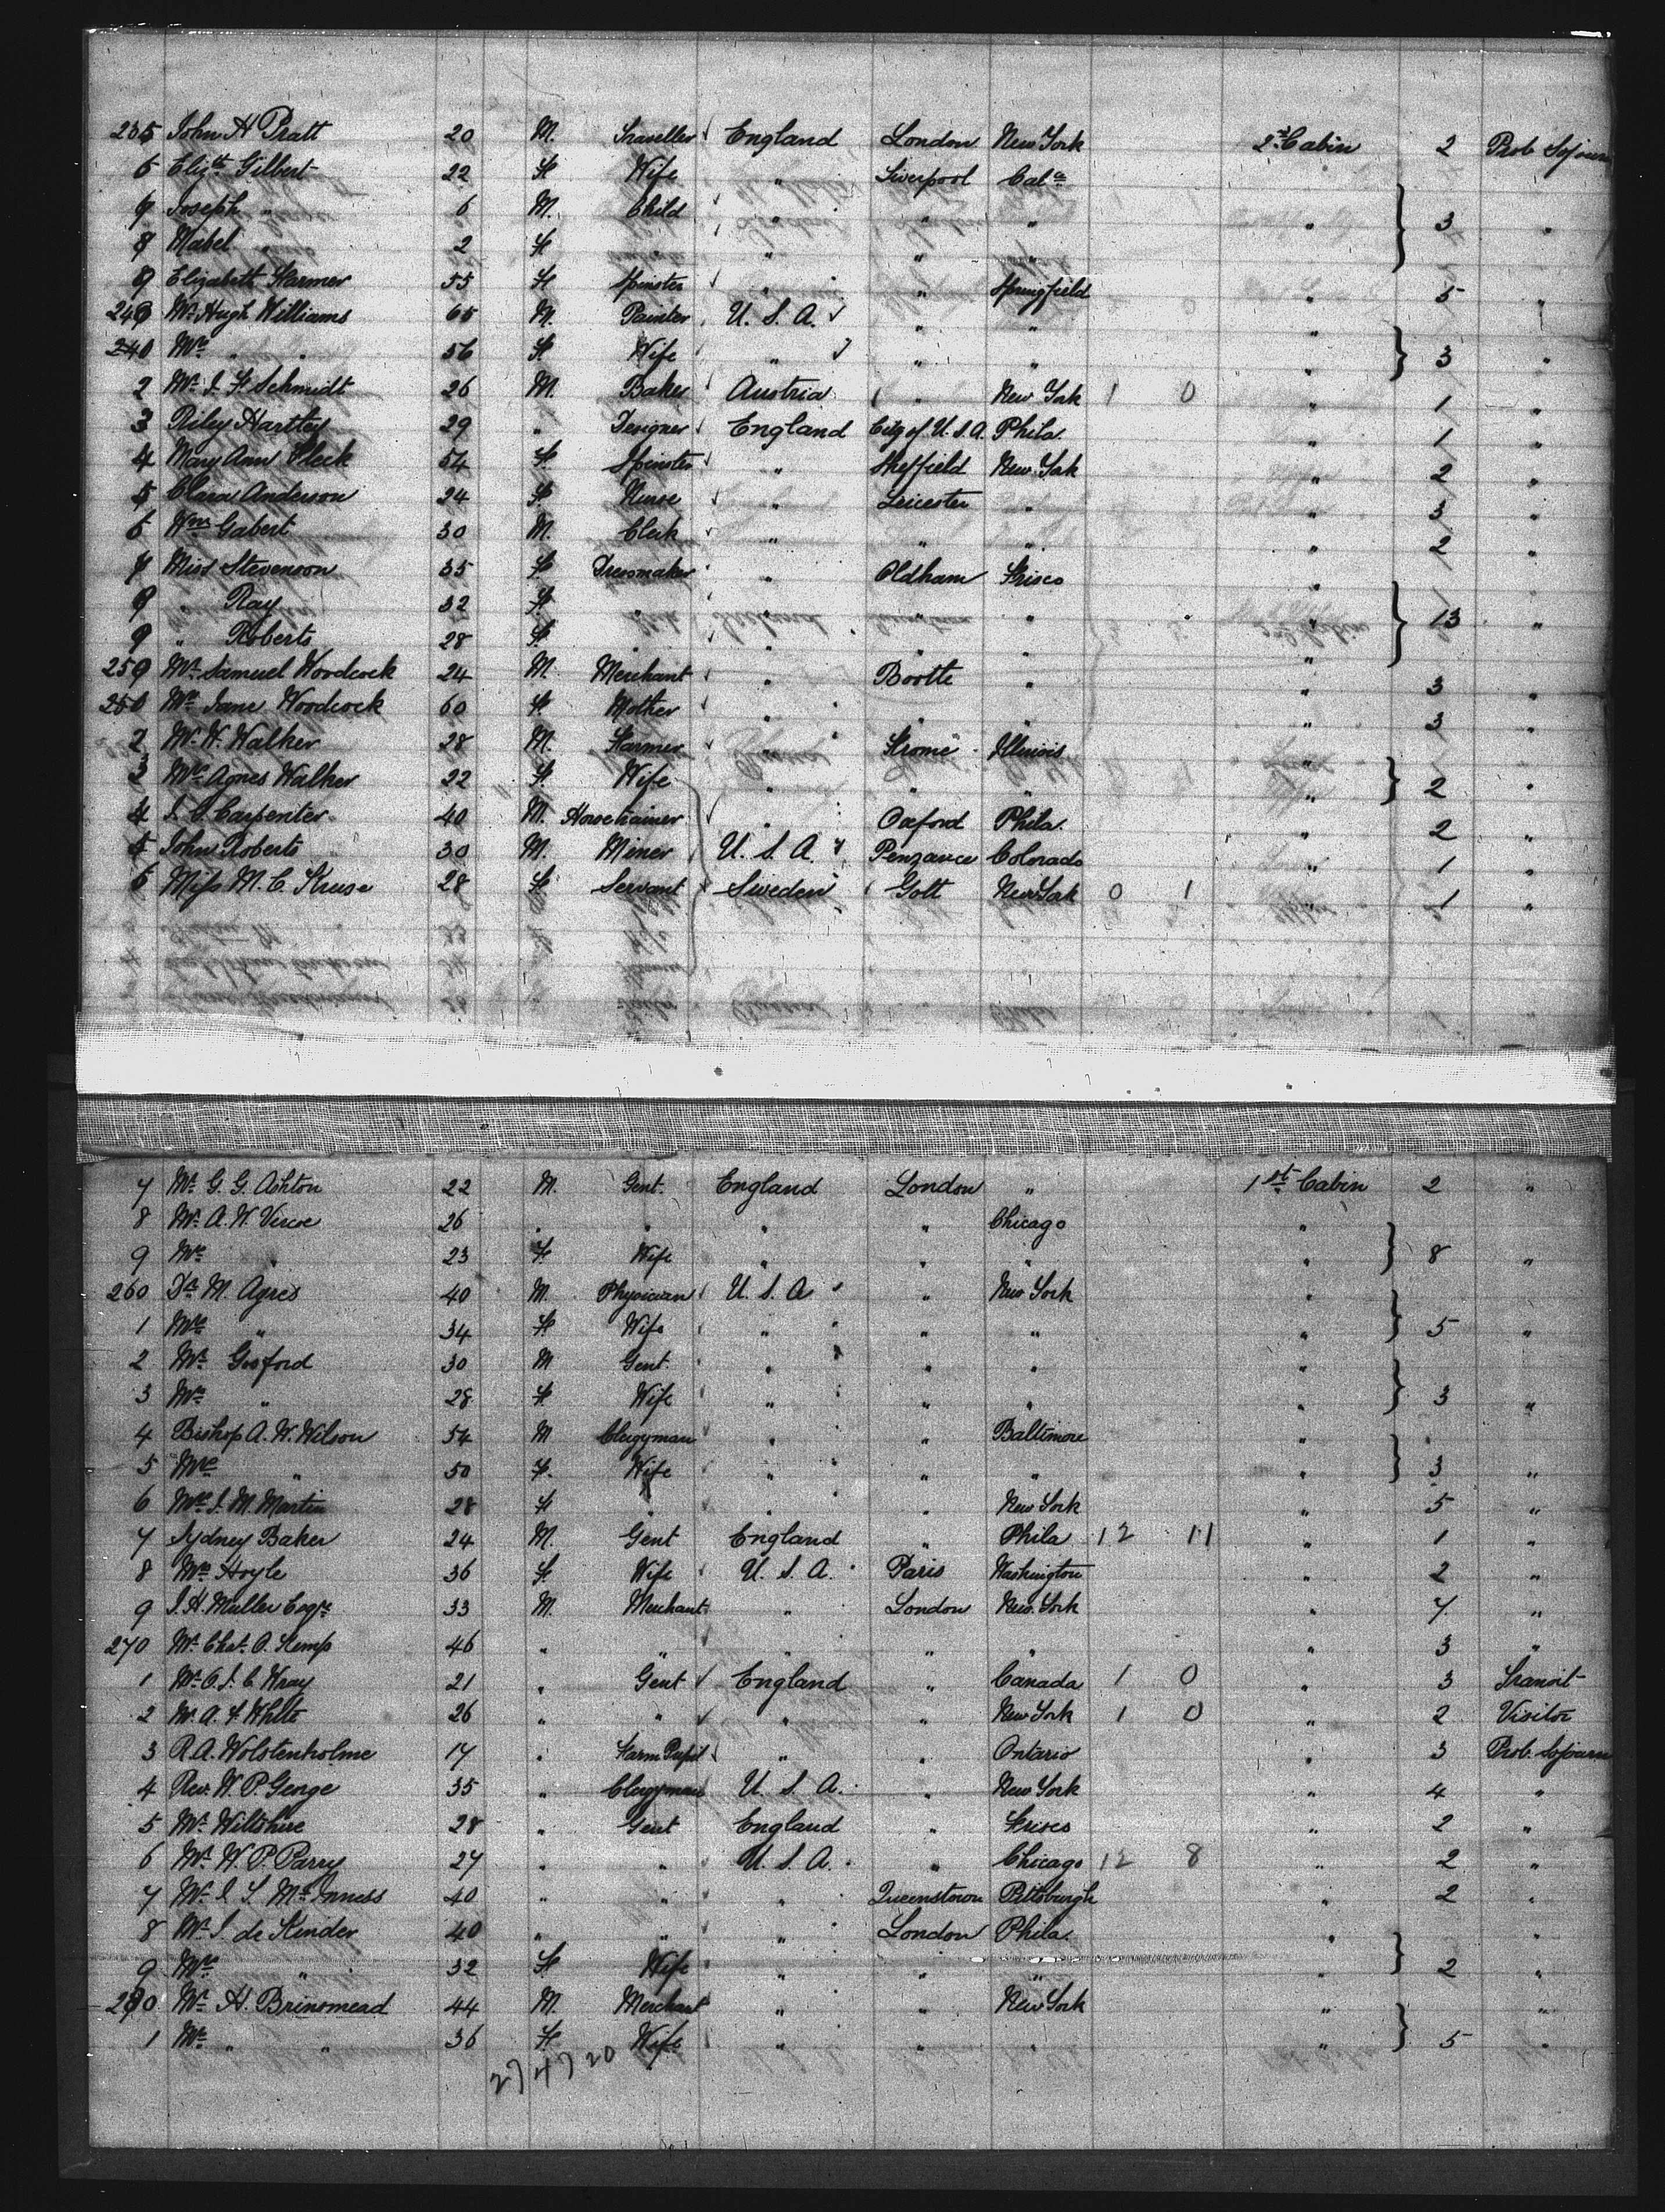 235 John H Pratt 20 M. Traveller England London New York 2nd Cabin 2 Prob Sojourn
6 Elizth Gilbert 22 F Wife " Liverpool Cala
7 Joseph " 6 M. Child " " " " 3 "
8 Mabel " 2 F " " " "
9 Elizabeth Farmer 55 F Spinster " " Springfield " 5 "
240 Mr Hugh Williams 65 M. Painter U. S. A. " " "
240 Mrs " " 56 F Wife " " " " 3 "
2 Mr J. F. Schmidt 26 M. Baker Austria " New York 1 0 " 1 "
3 Riley Hartley 29 " Designer England City of U.S.A. Phila. " 1 "
4 Mary Ann Fleck 54 F. Spinster " Sheffield New York " 2 "
5 Clara Anderson 24 F. Nurse " Leicester " " 3 "
6 Wm Gabert 30 M. Clerk " " " " 2 "
7 Miss Stevenson 35 F Dressmaker " Oldham Frisco "
8 " Ray 32 F. " " " " " 13 "
9 " Roberts 28 F. " " " " "
250 Mr Samuel Woodcock 24 M. Merchant " Bootle " " 3 "
250 Mrs Jane Woodcock 60 F. Mother " " " " 3 "
2 Mr W. Walker 28 M. Farmer " Frome Illinois "
3 Mrs Agnes Walker 22 F. Wife " " " " 2 "
4 J. S. Carpenter 40 M. Horsetrainer " Oxford Phila. " 2 "
5 John Roberts 30 M. Miner U. S. A. Penzance Colorado " 1 "
6 Miss M. C. Kruse 28 F Servant Sweden Gott New York 0 1 " 1 "
7 Mr G. G. Ashton 22 M. Gent. England London " 1st Cabin 2 "
8 Mr A. W. Vercoe 26 " " " " Chicago "
9 Mrs " 23 F. Wife " " " " 8 "
260 Dr M. Agres 40 M. Physician U. S. A " New York "
1 Mrs " 34 F Wife " " " " 5 "
2 Mr Gosford 30 M Gent. " " " "
3 Mrs " 28 F. Wife " " " " 3 "
4 Bishop A. W. Wilson 54 M Clergyman " " Baltimore "
5 Mrs " 50 F. Wife " " " " 3 "
6 Mrs J. M. Martin 28 F " " " New York " 5 "
7 Sydney Baker 24 M. Gent England " Phila 12 11 " 1 "
8 Mrs Hoyle 36 F. Wife U. S. A. Paris Washington " 2 "
9 J. H. Muller Esqre 33 M. Merchant " London New York " 7 "
270 Mr Chas. O. Kemp 46 " " " " " " 3 "
1 Mr O. J. C. Wray 21 " Gent England " Canada 1 0 " 3 Transit
2 Mr A. F. White 26 " " " " New York 1 0 " 2 Visitor
3 R. A. Wolstenholme 17 " Farm Pupil " " Ontario " 3 Prob. Sojourn
4 Rev. W. P. George 35 " Clergyman U. S. A. " New York " 4 "
5 Mr Wiltshire 28 " Gent England " Frisco " 2 "
6 Mr W. P. Parry 27 " " U. S. A. " Chicago 12 8 " 2 "
7 Mr J. S. McInness 40 " " " Queenstown Pittsburgh " 2 "
8 Mr J. de Kinder 40 " " " London Phila. " "
9 Mrs " 32 F Wife " " " " 2 "
280 Mr H. Brinsmead 44 M. Merchant " " New York " "
1 Mrs " " 36 F Wife " " " " 5 "
27 47 20